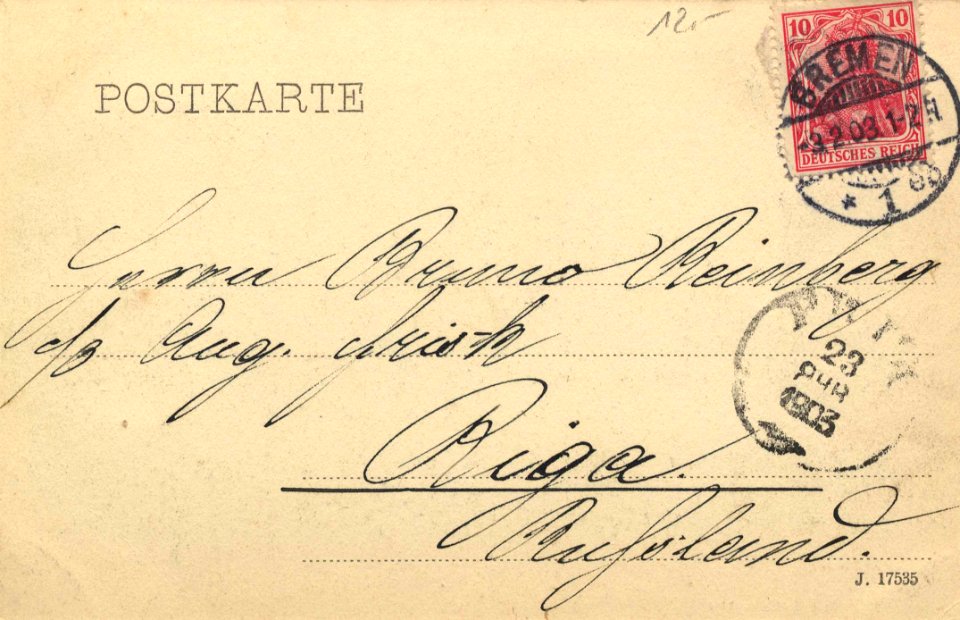 12.-
POSTKARTE
10 10
DEUTSCHES REICH
BREMEN
-9.2.03.1-2N
* 1
Herrn Bruno Reinberg
p/a Aug.
Riga.
Rußland.
23
ЯНВ
1903
J. 17535